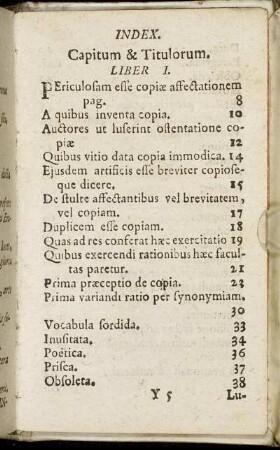 INDEX.
Capitum & Titulorum.
LIBER I.
PEriculosam esse copiæ affectationem
pag. 8
A quibus inventa copia. 10
Auctores ut luserint ostentatione co-
piæ 12
Quibus vitio data copia immodica. 14
Ejusdem artificis esse breviter copiose-
que dicere. 15
De stulte affectantibus vel brevitatem,
vel copiam. 17
Duplicem esse copiam. 18
Quas ad res conferat hæc exercitatio 19
Quibus exercendi rationibus hæc facul-
tas paretur. 21
Prima præceptio de copia. 23
Prima variandi ratio per synonymiam.
30
Vocabula sordida. 33
Inusitata. 34
Poëtica. 36
Prisca. 37
Obsoleta. 38
Y 5 Lu-